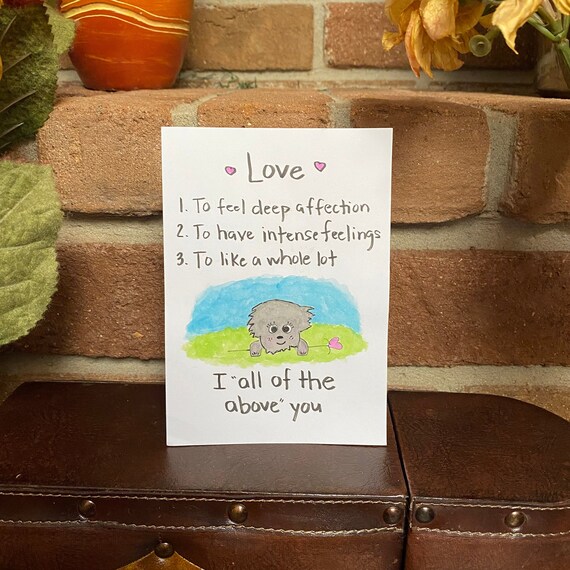 Love
1. To feel deep affection
2. To have intense feelings
3. To like a whole lot
I "all of the
above" you